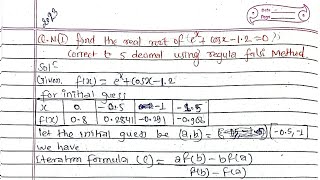 2023
Date :
Page :
Q.N.(1) find the real root of (e^x + cosx - 1.2 = 0)
correct to 5 decimal using regula falsi Method
Sol^n
Given, f(x) = e^x + cosx - 1.2
for initial guess
x 0 -0.5 -1 -1.5
f(x) 0.8 0.2841 -0.291 -0.906
let the initial guess be (a,b) = (-0.5,-1
we have
Iteration formula (C) = af(b) - bf(a)
f(b) - f(a)